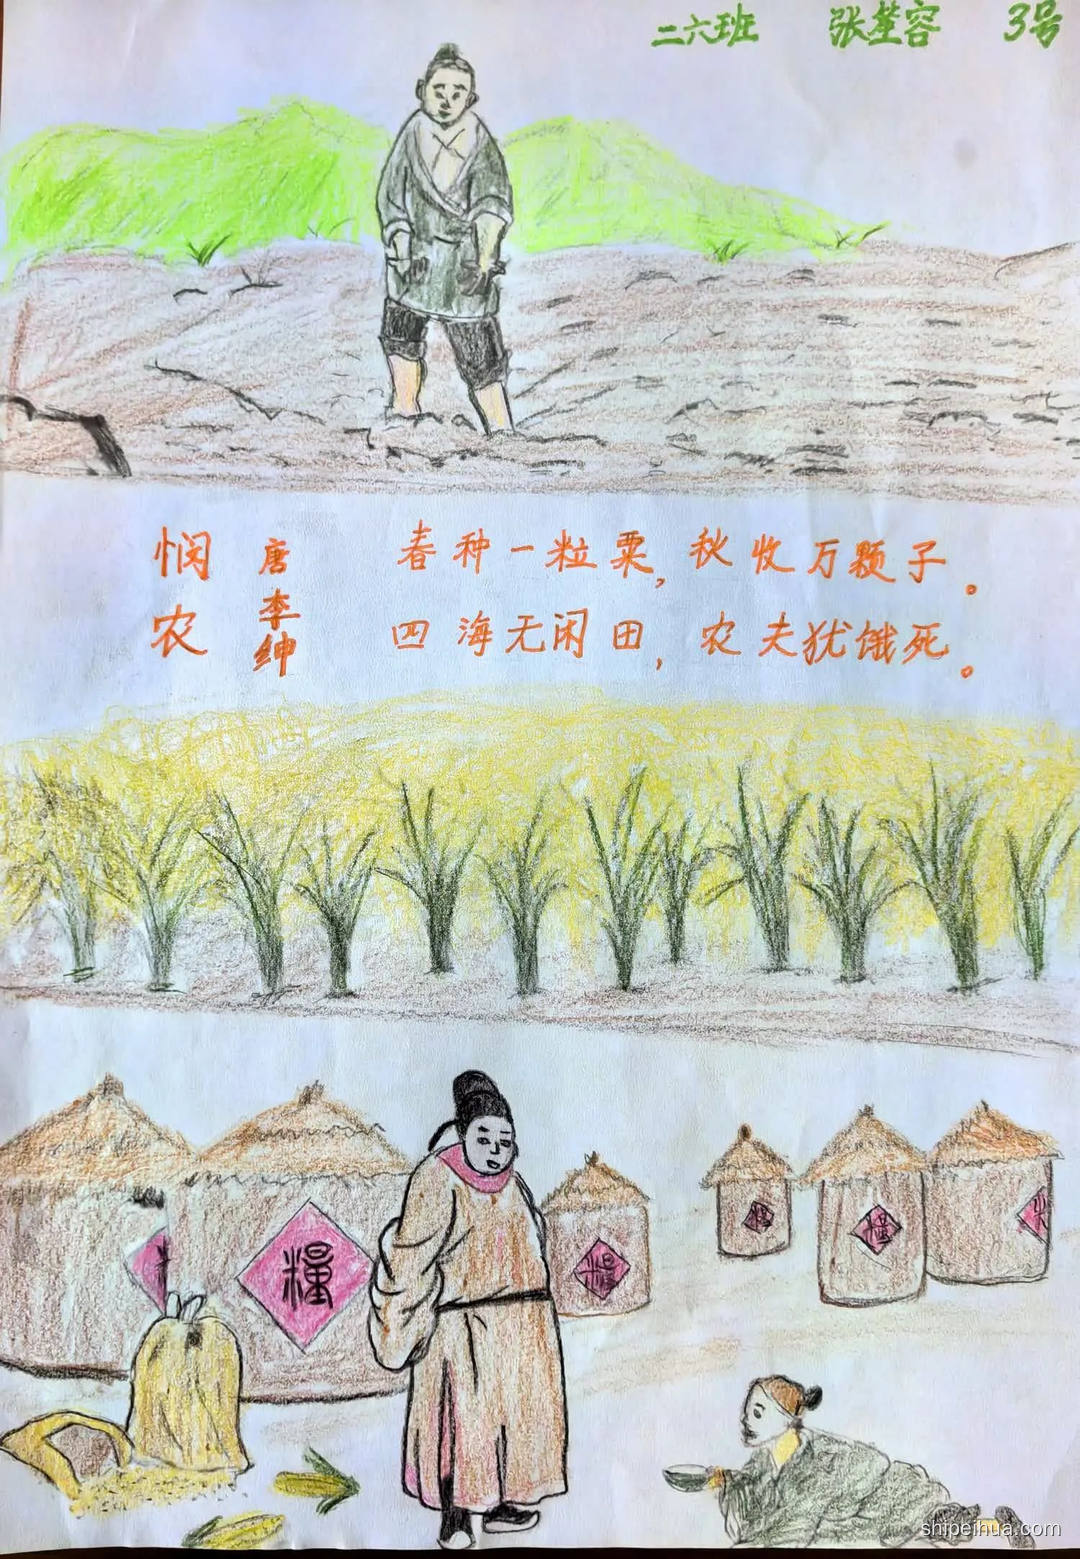 二六班 张莹容 3号
悯农
唐 李绅
春种一粒粟,秋收万颗子。
四海无闲田,农夫犹饿死。
糧
糧
糧
糧
shipeihua.com